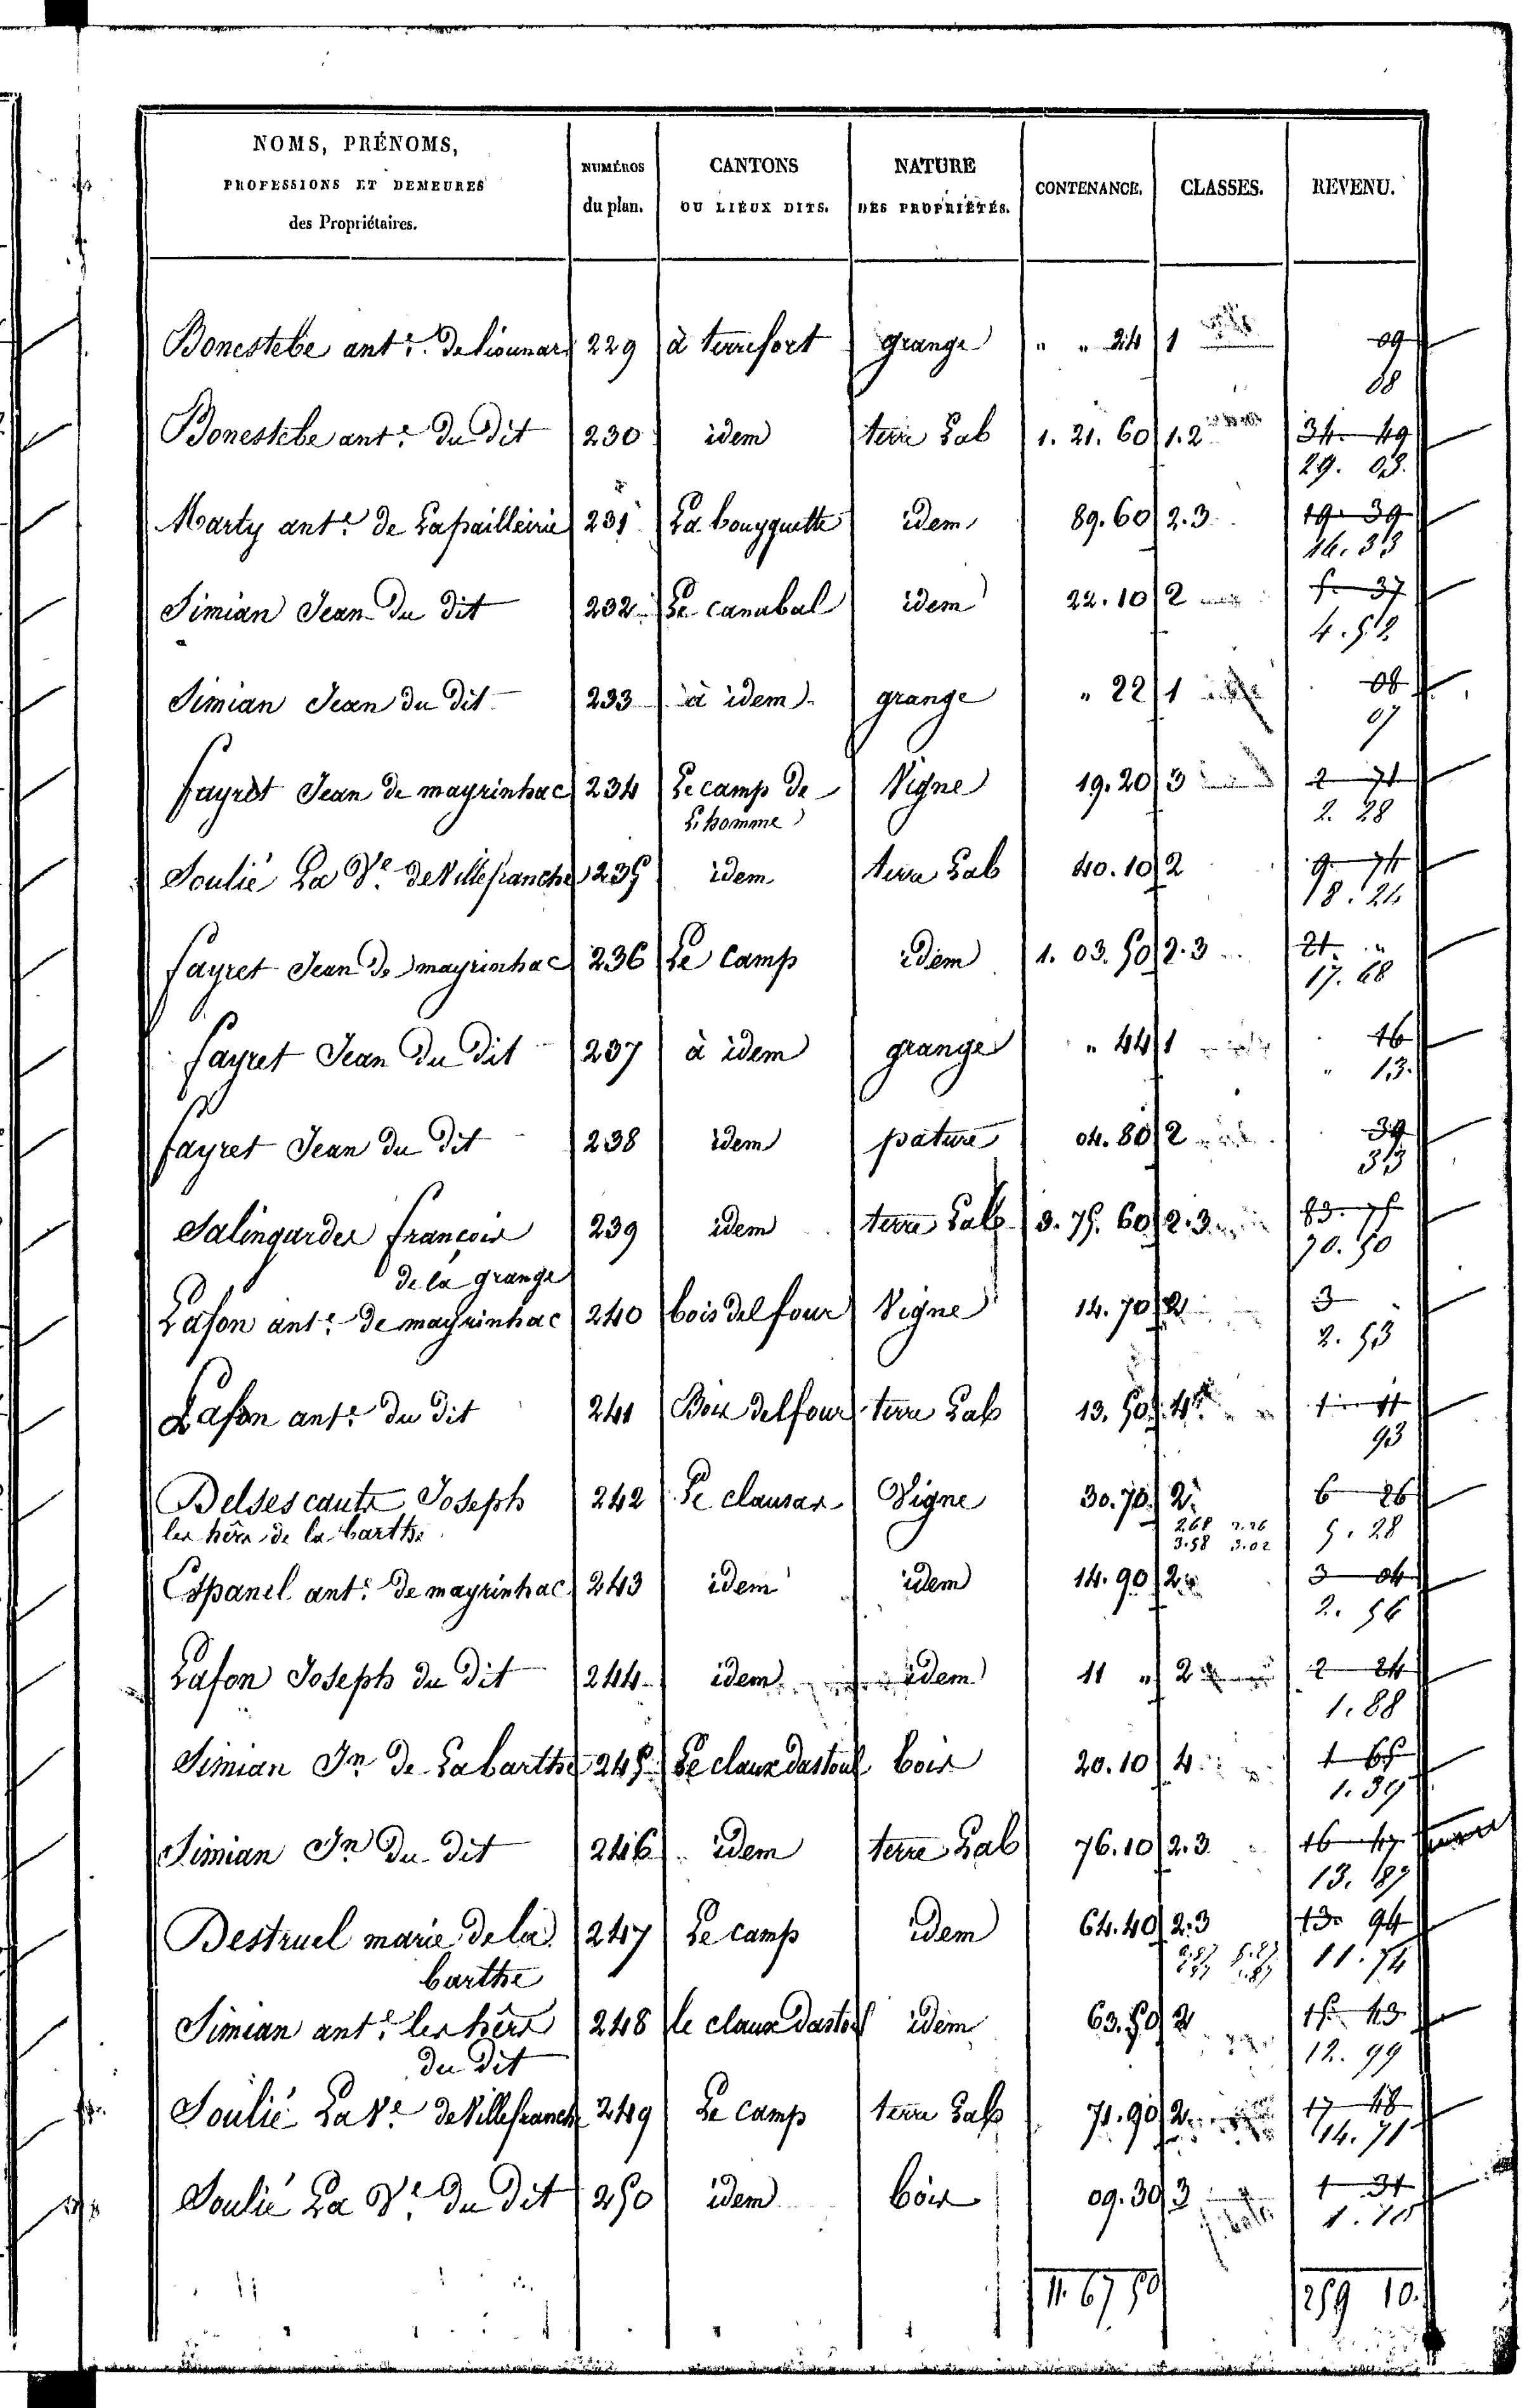 NOMS, PRÉNOMS, PROFESSIONS ET DEMEURES des Propriétaires. NUMÉROS du plan. CANTONS OU LIEUX DITS. NATURE DES PROPRIÉTÉS. CONTENANCE. CLASSES. REVENU.
Bonestebe ant.e de liounar 229 à terrefort grange " " 24 1 09
08
Bonestebe ant.e du dit 230 idem terre Lab 1. 21. 60 1.2 34. 49
29. 03.
Marty ant.e de Lapailleirie 231 La bouyguette idem 89.60 2.3 19. 39
16. 33
Simian Jean du dit 232 Le canabal idem 22.10 2 5. 37
4. 52
Simian Jean du dit 233 à idem grange " 22 1 08
07
fayret Jean de mayrinhac 234 Le camp de Vigne 19.20 3 2 71
L'homme 2. 28
Soulié La Ve de Villefranche 235 idem terre Lab 40.10 2 9. 74
8. 24
fayret Jean de mayrinhac 236 Le Camp idem 1. 03. 50 2.3 21. "
17. 68
fayret Jean du dit 237 à idem grange " 44 1 16
" 13.
fayret Jean du dit 238 idem pature 04.80 2 39
33
Salingardes françois 239 idem terre Lab 3. 75. 60 2.3 83. 75
de la grange 70. 50
Lafon ant.e de mayrinhac 240 bois del four Vigne 14.70 2 3
2. 53
Lafon ant.e du dit 241 Bois delfour terre Lab 13.50 4 1 11
93
Delsescauts Joseph 242 Le clausas Vigne 30.70 2 6 26
les hers de la barthe 2.68 2.26 5. 28
3.58 3.02
Espanel ant.e de mayrinhac 243 idem idem 14.90 2 3 04
2. 56
Lafon Joseph du dit 244 idem idem 11 " 2 2 24
1. 88
Simian Jn de Labarthe 245 Le claux dastoul bois 20.10 4 1 65
1. 39
Simian Jn du dit 246 idem terre Lab 76.10 2.3 16 47
13. 89
Destruel marie de la 247 Le camp idem 64.40 2.3 13. 94
barthe 11. 74
Simian ant.e les hers 248 le claux dastoul idem 63.50 2 15. 43
du dit 12. 99
Soulié La Ve de Villefranche 249 Le camp terre Lab 71.90 2 17 48
14. 71
Soulié La Ve du dit 250 idem bois 09.30 3 1 31
1. 10
11. 67 50 259 10.